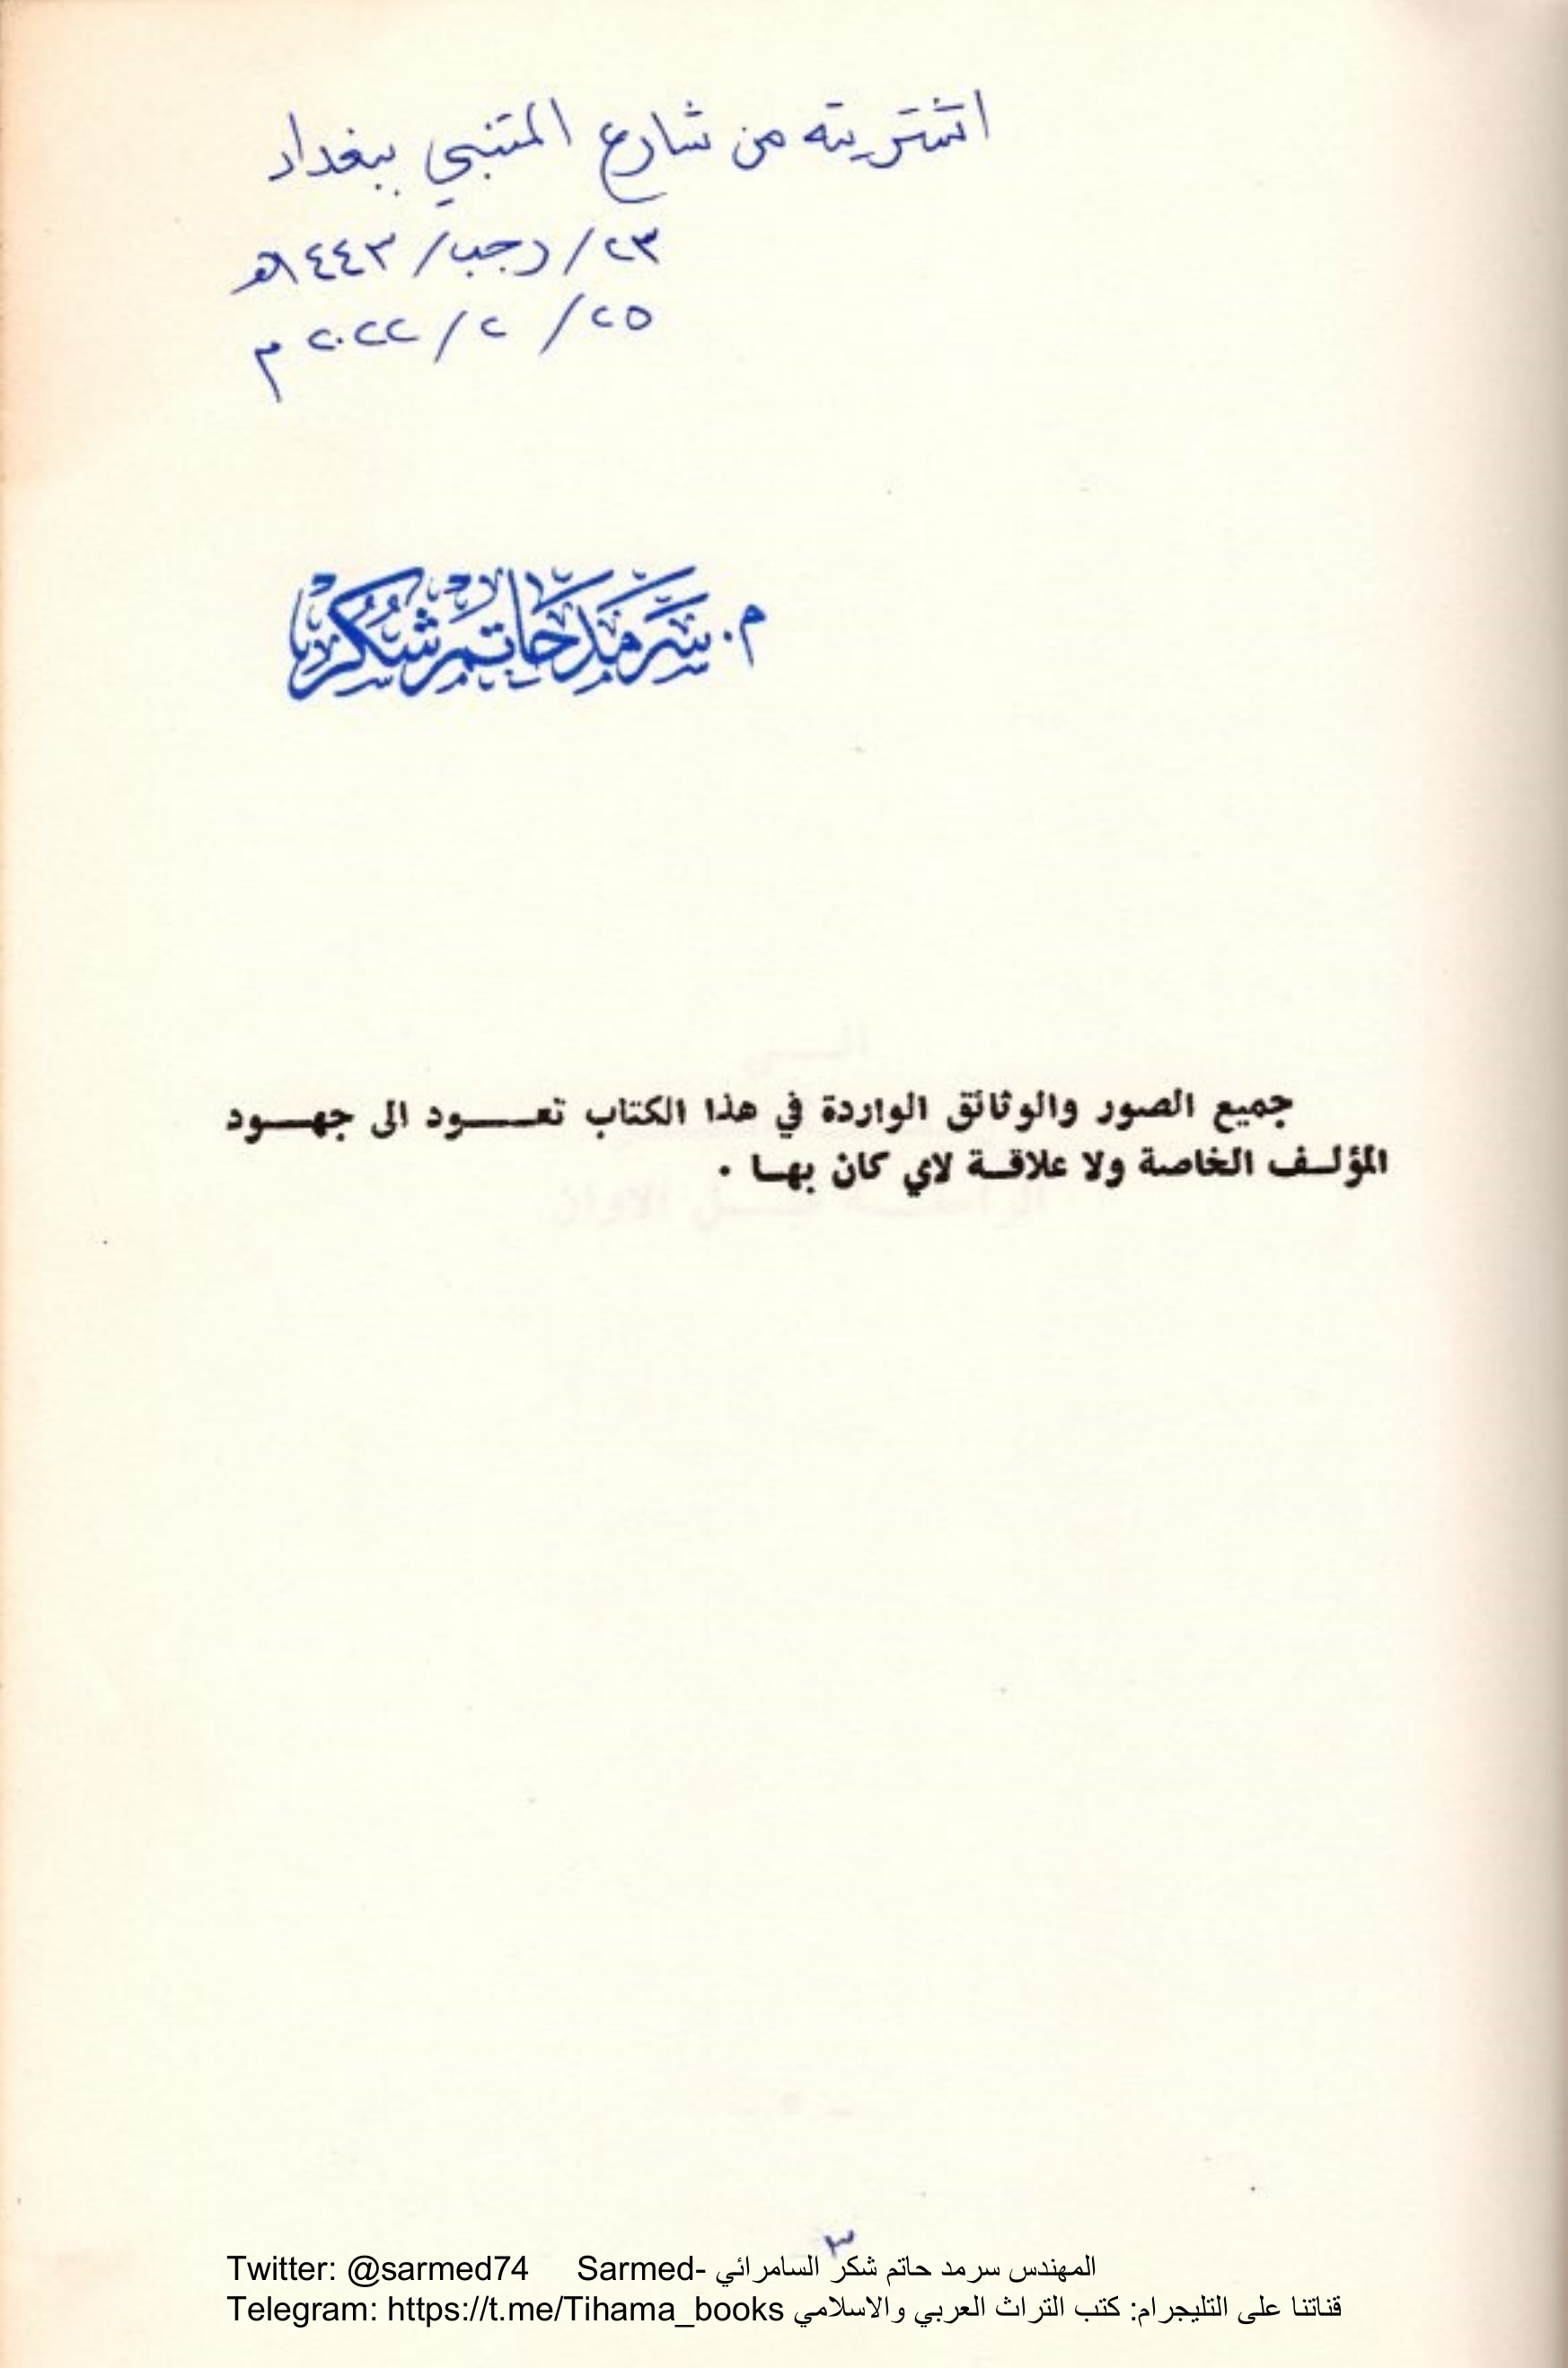 اشتريته من شارع المتنبي ببغداد
٢٣/ رجب/ ١٤٤٣هـ
٢٥/ ٢/ ٢٠٢٢ م
م. سَرمَد حَاتم شُكر
جميع الصور والوثائق الواردة في هذا الكتاب تعـــود الى جهـــود
المؤلـف الخاصة ولا علاقـة لاي كان بهـا .
٣
Twitter: @sarmed74 Sarmed- المهندس سرمد حاتم شكر السامرائي
Telegram: https://t.me/Tihama_books قناتنا على التليجرام: كتب التراث العربي والاسلامي